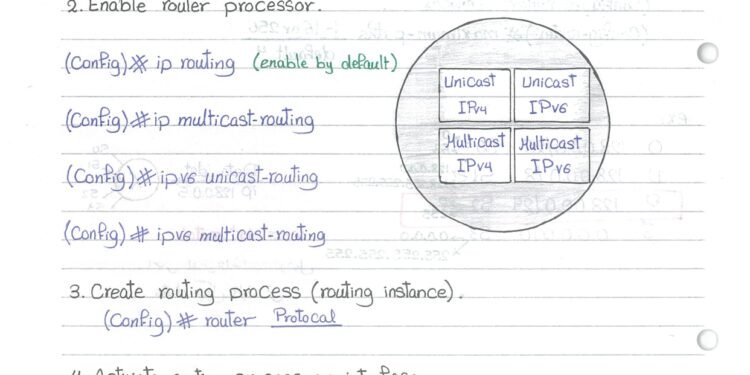 2. Enable router processor.
(Config)# ip routing (enable by default)
(Config)# ip multicast-routing
(Config)# ipv6 unicast-routing
(Config)# ipv6 multicast-routing
Unicast IPv4
Unicast IPv6
Multicast IPv4
Multicast IPv6
3. Create routing process (routing instance).
(Config)# router Protocal